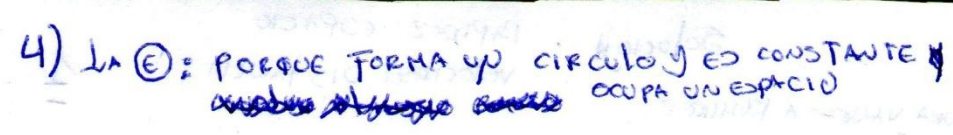 4) LA Ⓔ: PORQUE FORMA UN CIRCULO Y ES CONSTANTE Y
OCUPA UN ESPACIO